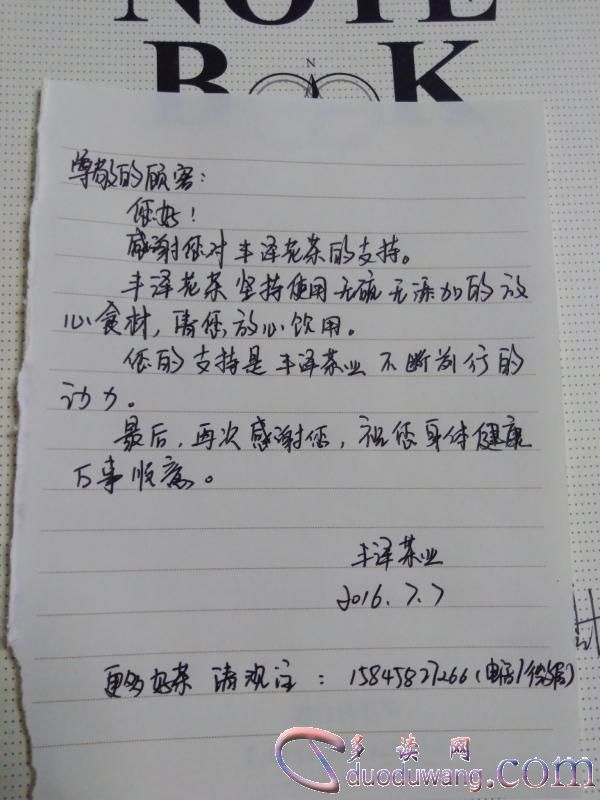 NOTE
BOOK
N
尊敬的顾客：
您好！
感谢您对丰泽花茶的支持。
丰泽花茶坚持使用无硫无添加的放
心食材，请您放心饮用。
您的支持是丰泽茶业不断前行的
动力。
最后，再次感谢您，祝您身体健康
万事顺意。
丰泽茶业
2016.7.7
更多好茶 请观注：15845827266（电话/微信）
多读网
duoduwang.com